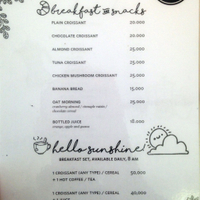 breakfast & snacks
PLAIN CROISSANT 20,000
CHOCOLATE CROISSANT 20,000
ALMOND CROISSANT 25,000
TUNA CROISSANT 25,000
CHICKEN MUSHROOM CROISSANT 25,000
BANANA BREAD 15,000
OAT MORNING 25,000
BOTTLED JUICE 18,000
orange, apple and guava
hello sunshine
BREAKFAST SET, AVAILABLE DAILY, 8 AM
1 CROISSANT (ANY TYPE) / CEREAL 50,000
+ 1 HOT COFFEE / TEA
1 CROISSANT (ANY TYPE) / CEREAL 40,000